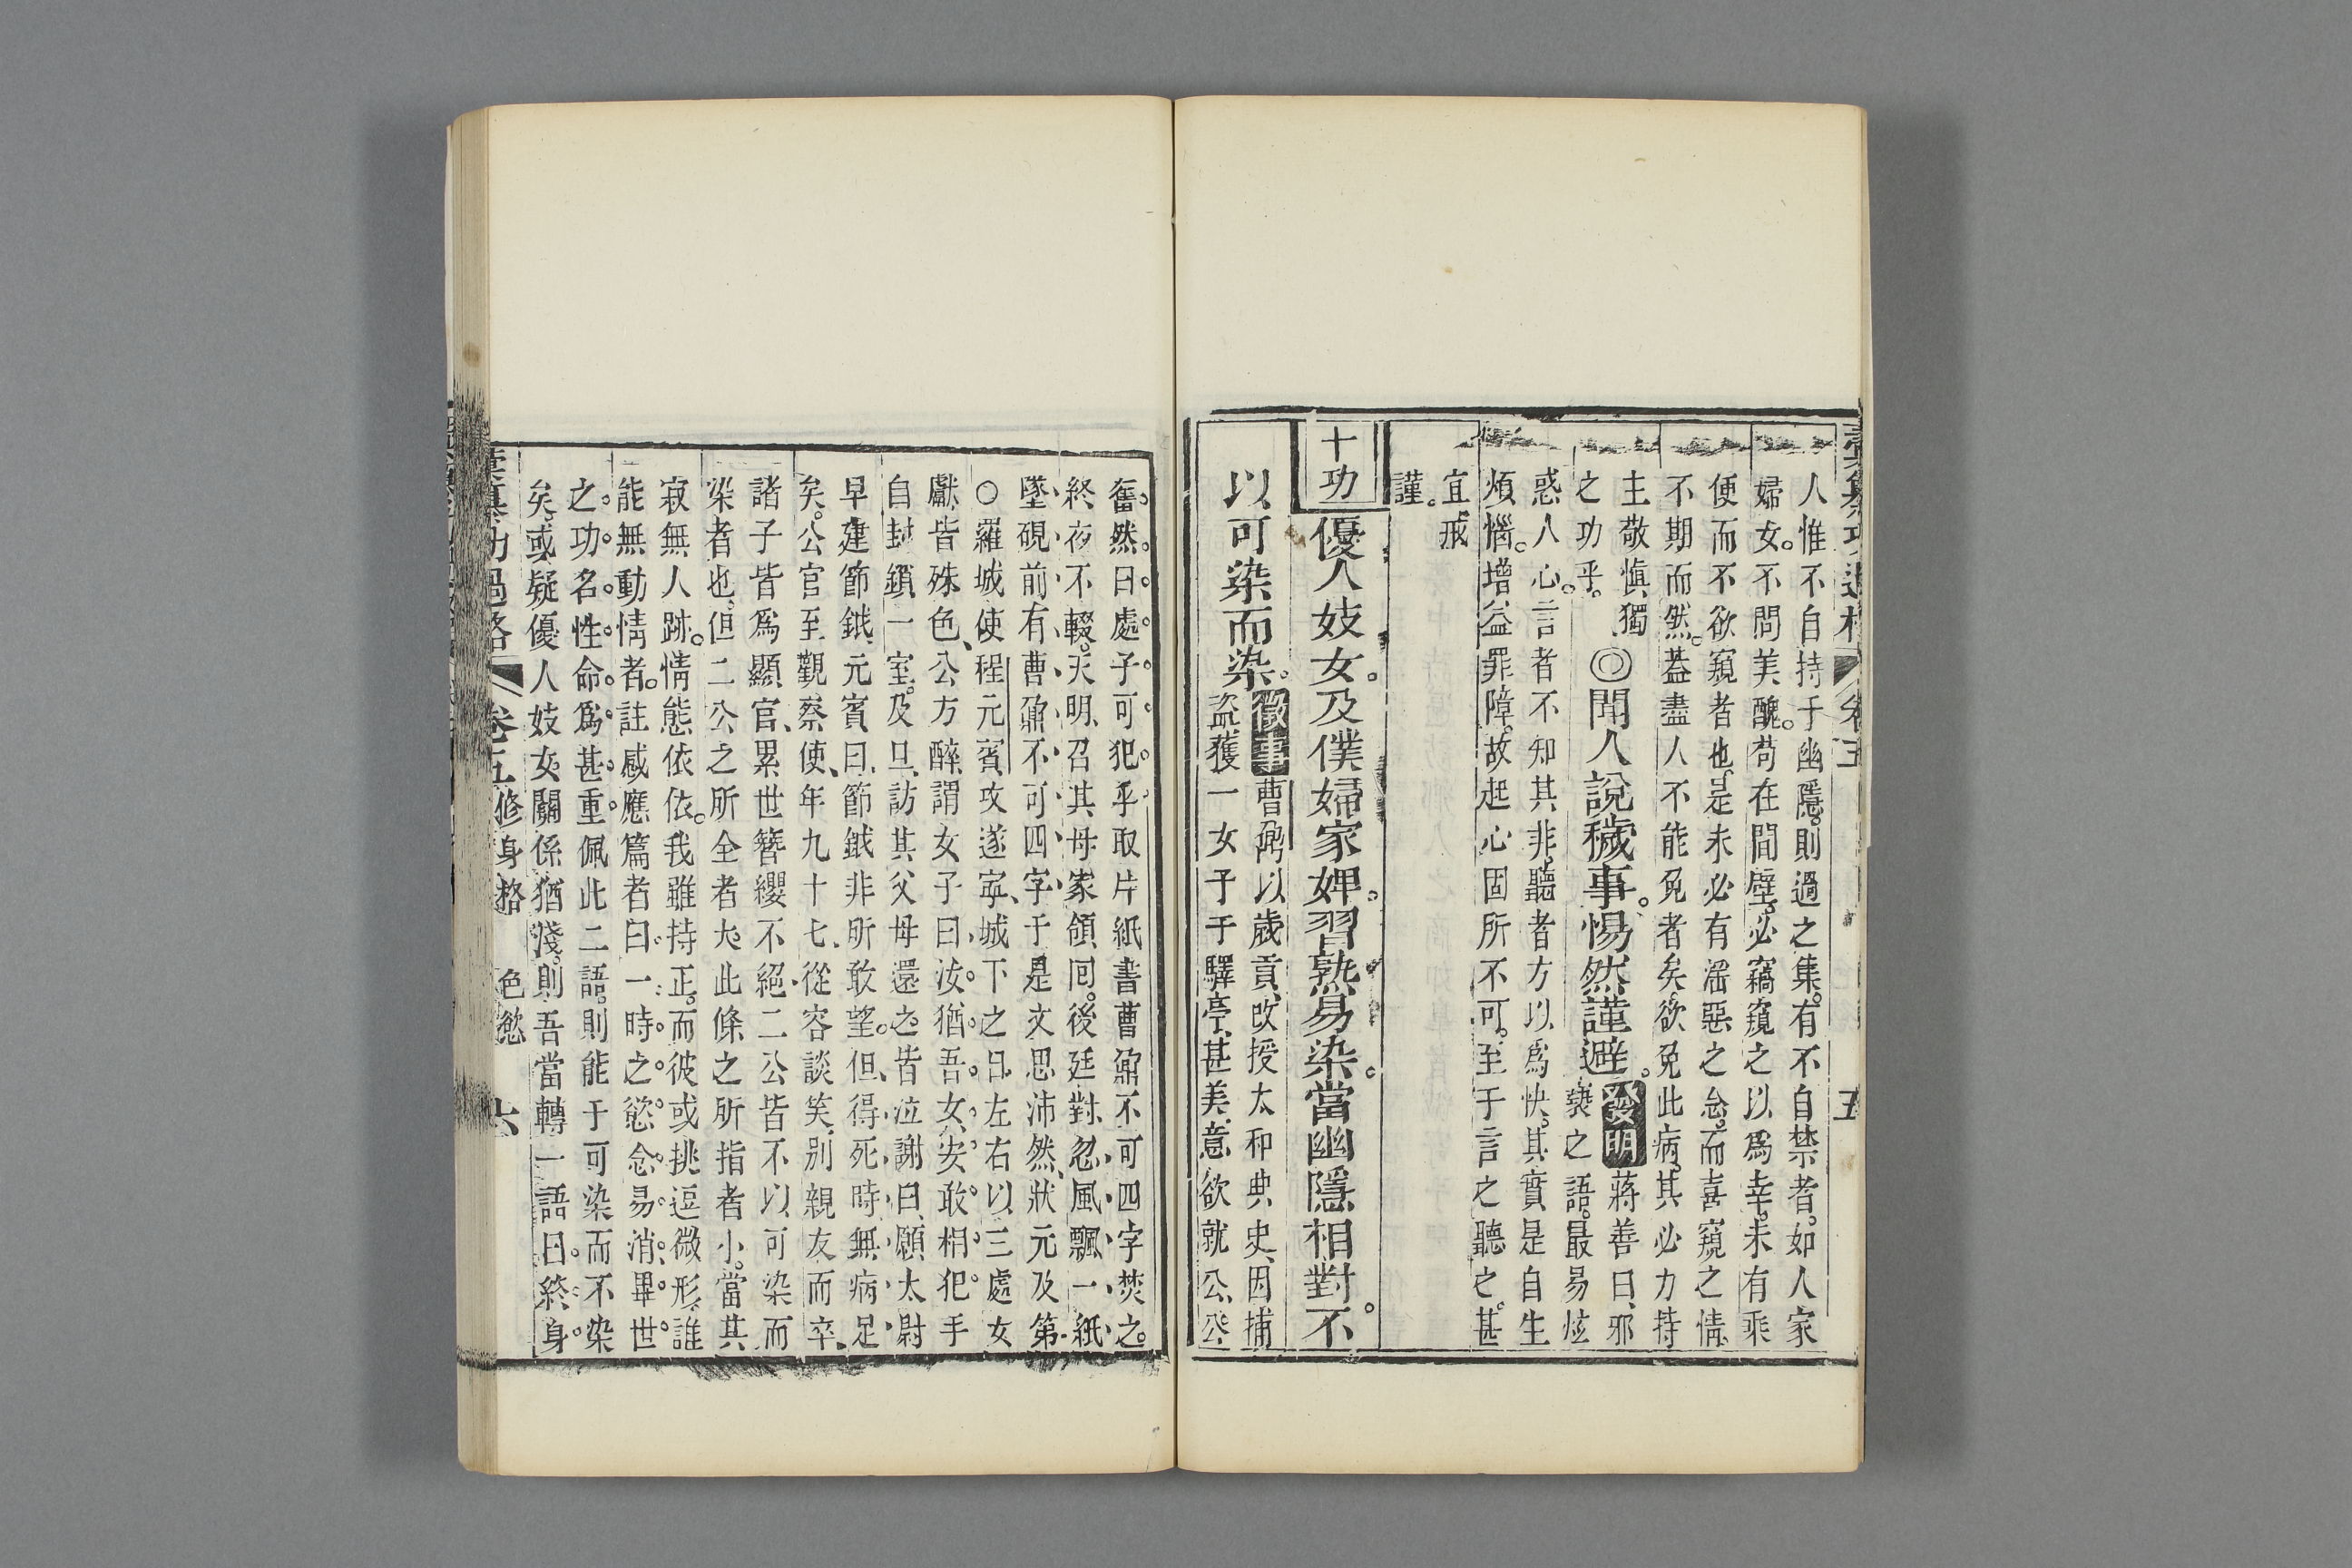 彙纂功過格 卷五 五
人惟不自持于幽隱。則過之集。有不自禁者。如人家
婦女。不問美醜。苟在間壁。必竊窺之以爲幸。未有乘
便而不欲窺者也。是未必有淫惡之念。而喜窺之情
不期而然。葢盡人不能免者矣。欲免此病。其必力持
主敬慎獨
之功乎。
◎聞人說穢事。惕然謹避。
發明 蔣善曰、邪
褻之語。最易炫
惑人心。言者不知其非。聽者方以爲快。其實是自生
煩惱。增益罪障。故起心固所不可。至于言之聽之。甚
宜戒
謹。
十功
優人妓女。及僕婦家婢。習熟易染。當幽隱相對。不
以可染而染。
徵事 曹鼐以歲貢、改授太和典史、因捕
盜、獲一女子于驛亭、甚美、意欲就公、公
奮然曰。處子可犯乎。取片紙書曹鼐不可四字焚之。
終夜不輟。天明、召其母家領回。後廷對、忽風飄一紙
墜硯前有曹鼐不可四字于是文思沛然、狀元及第。
○羅城使程元賓、攻遂寧、城下之日、左右以三處女
獻、皆殊色、公方醉、謂女子曰、汝猶吾女、安敢相犯。手
自封鎖一室。及旦、訪其父母還之、皆泣謝曰、願太尉
早建節鉞、元賓曰、節鉞非所敢望。但得死時無病足
矣。公官至觀察使、年九十七、從容談笑、別親友而卒、
諸子皆爲顯官、累世簪纓不絕、二公皆不以可染而
染者也。但二公之所全者大。此條之所指者小。當其
寂無人跡。情態依依。我雖持正。而彼或挑逗微形。誰
能無動情者。註感應篇者曰。一時之慾念易消。畢世
之功名性命爲甚重。佩此二語。則能于可染而不染
矣。或疑優人妓女。關係猶淺。則吾當轉一語曰。終身
彙纂功過格 卷五 修身格 色慾 六